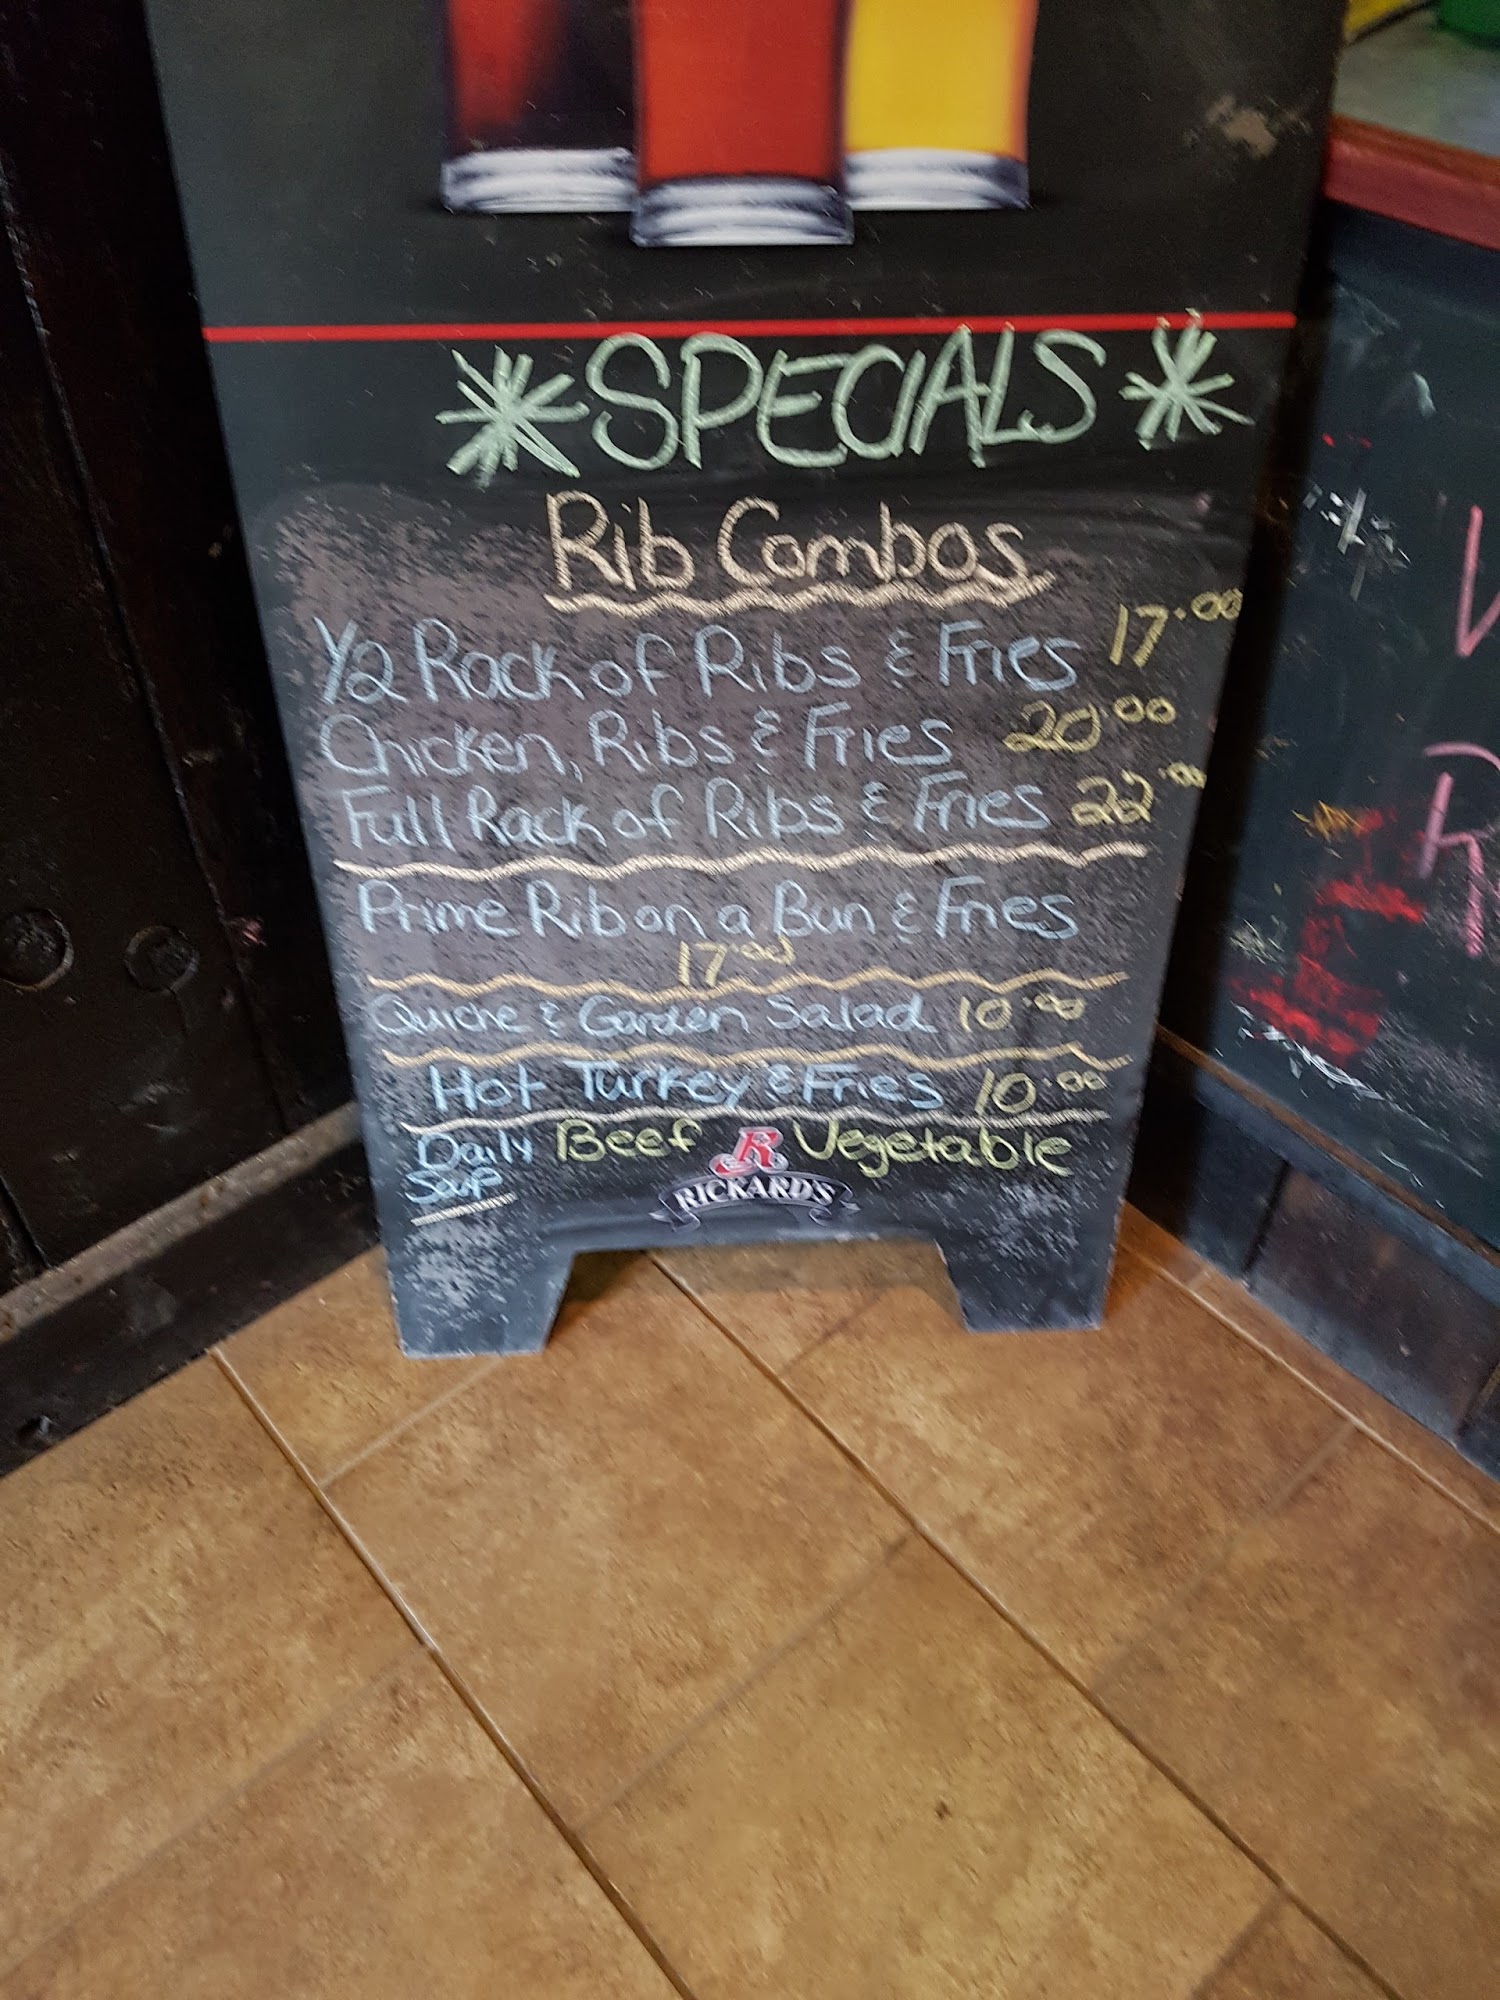 *SPECIALS*
Rib Combos
1/2 Rack of Ribs & Fries 17.00
Chicken, Ribs & Fries 20.00
Full Rack of Ribs & Fries 22.00
Prime Rib on a Bun & Fries
17.00
Quiche & Garden Salad 10.00
Hot Turkey & Fries 10.00
Daily Beef R Vegetable
Soup
RICKARD'S